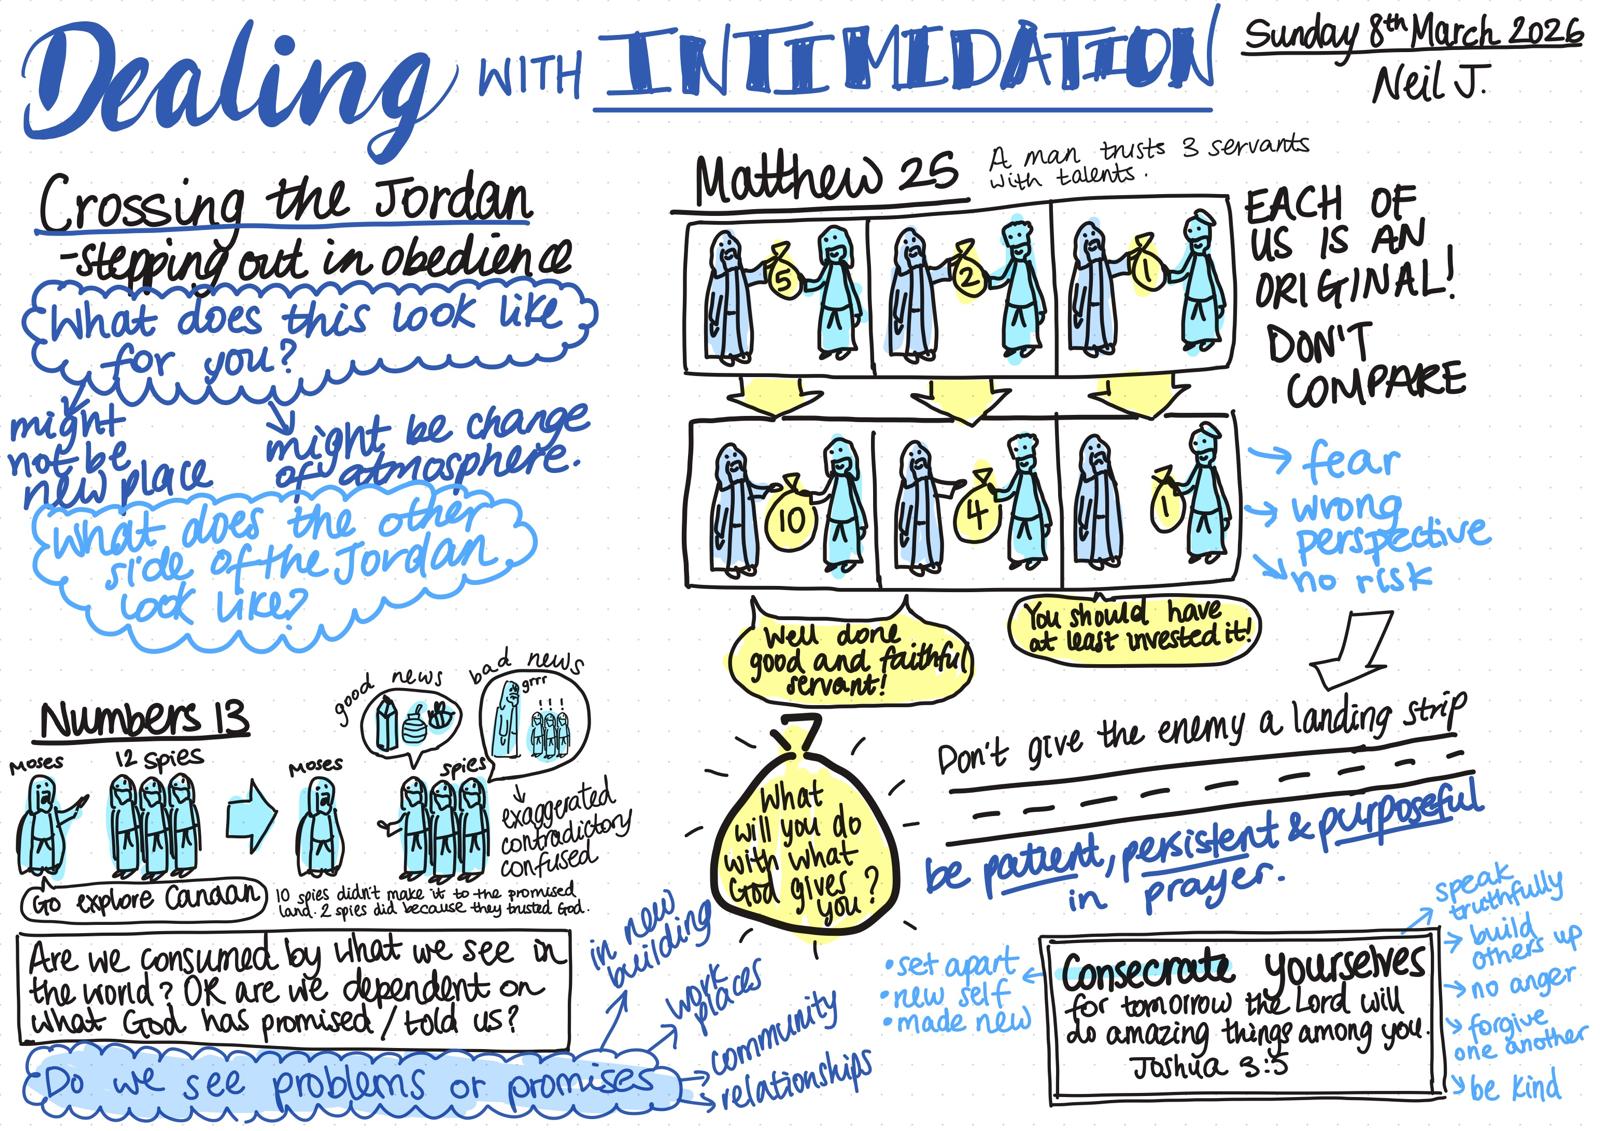 Dealing WITH INTIMIDATION
Sunday 8th March 2026
Neil J.
Crossing the Jordan
-stepping out in obedience
What does this look like
for you?
might
not be
new place
might be change
of atmosphere.
What does the other
side of the Jordan
look like?
Numbers 13
Moses
12 spies
Go explore Canaan
Moses
good news
bad news
grrr
!!!
spies
exaggerated
contradictory
confused
10 spies didn't make it to the promised
land. 2 spies did because they trusted God.
Are we consumed by what we see in
the world? OR are we dependent on
what God has promised/told us?
Do we see problems or promises
in new
building
work
places
community
relationships
Matthew 25
A man trusts 3 servants
with talents.
5
2
1
10
4
1
EACH OF
US IS AN
ORIGINAL!
DON'T
COMPARE
fear
wrong
perspective
no risk
Well done
good and faithful
servant!
You should have
at least invested it!
What
will you do
with what
God gives
you?
Don't give the enemy a landing strip
be patient, persistent & purposeful
in prayer.
•set apart
•new self
•made new
Consecrate yourselves
for tomorrow the Lord will
do amazing things among you.
Joshua 3:5
speak
truthfully
build
others up
no anger
forgive
one another
be kind